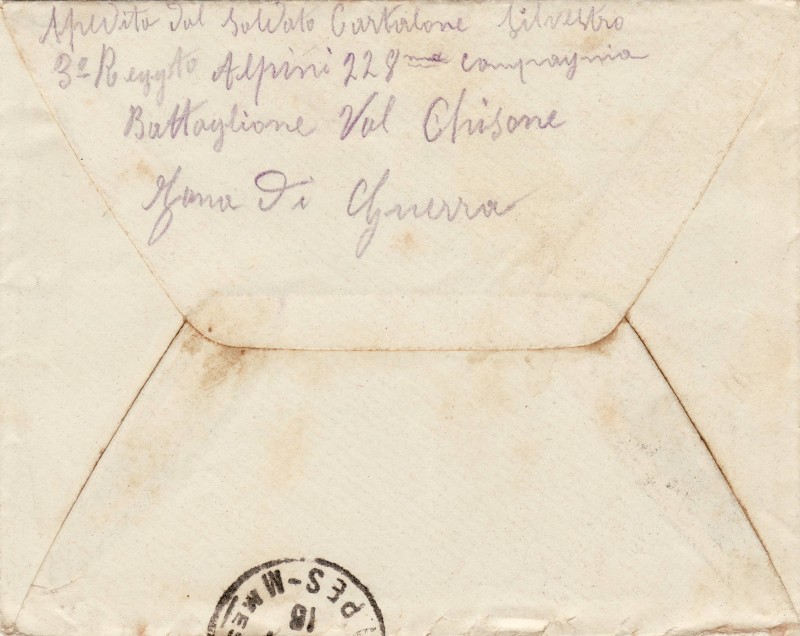 Spedito dal Soldato Cartalone Silvestro
3º Reggto Alpini 228me compagnia
Battaglione Val Chisone
Zona Di Guerra
PES-M MES
18